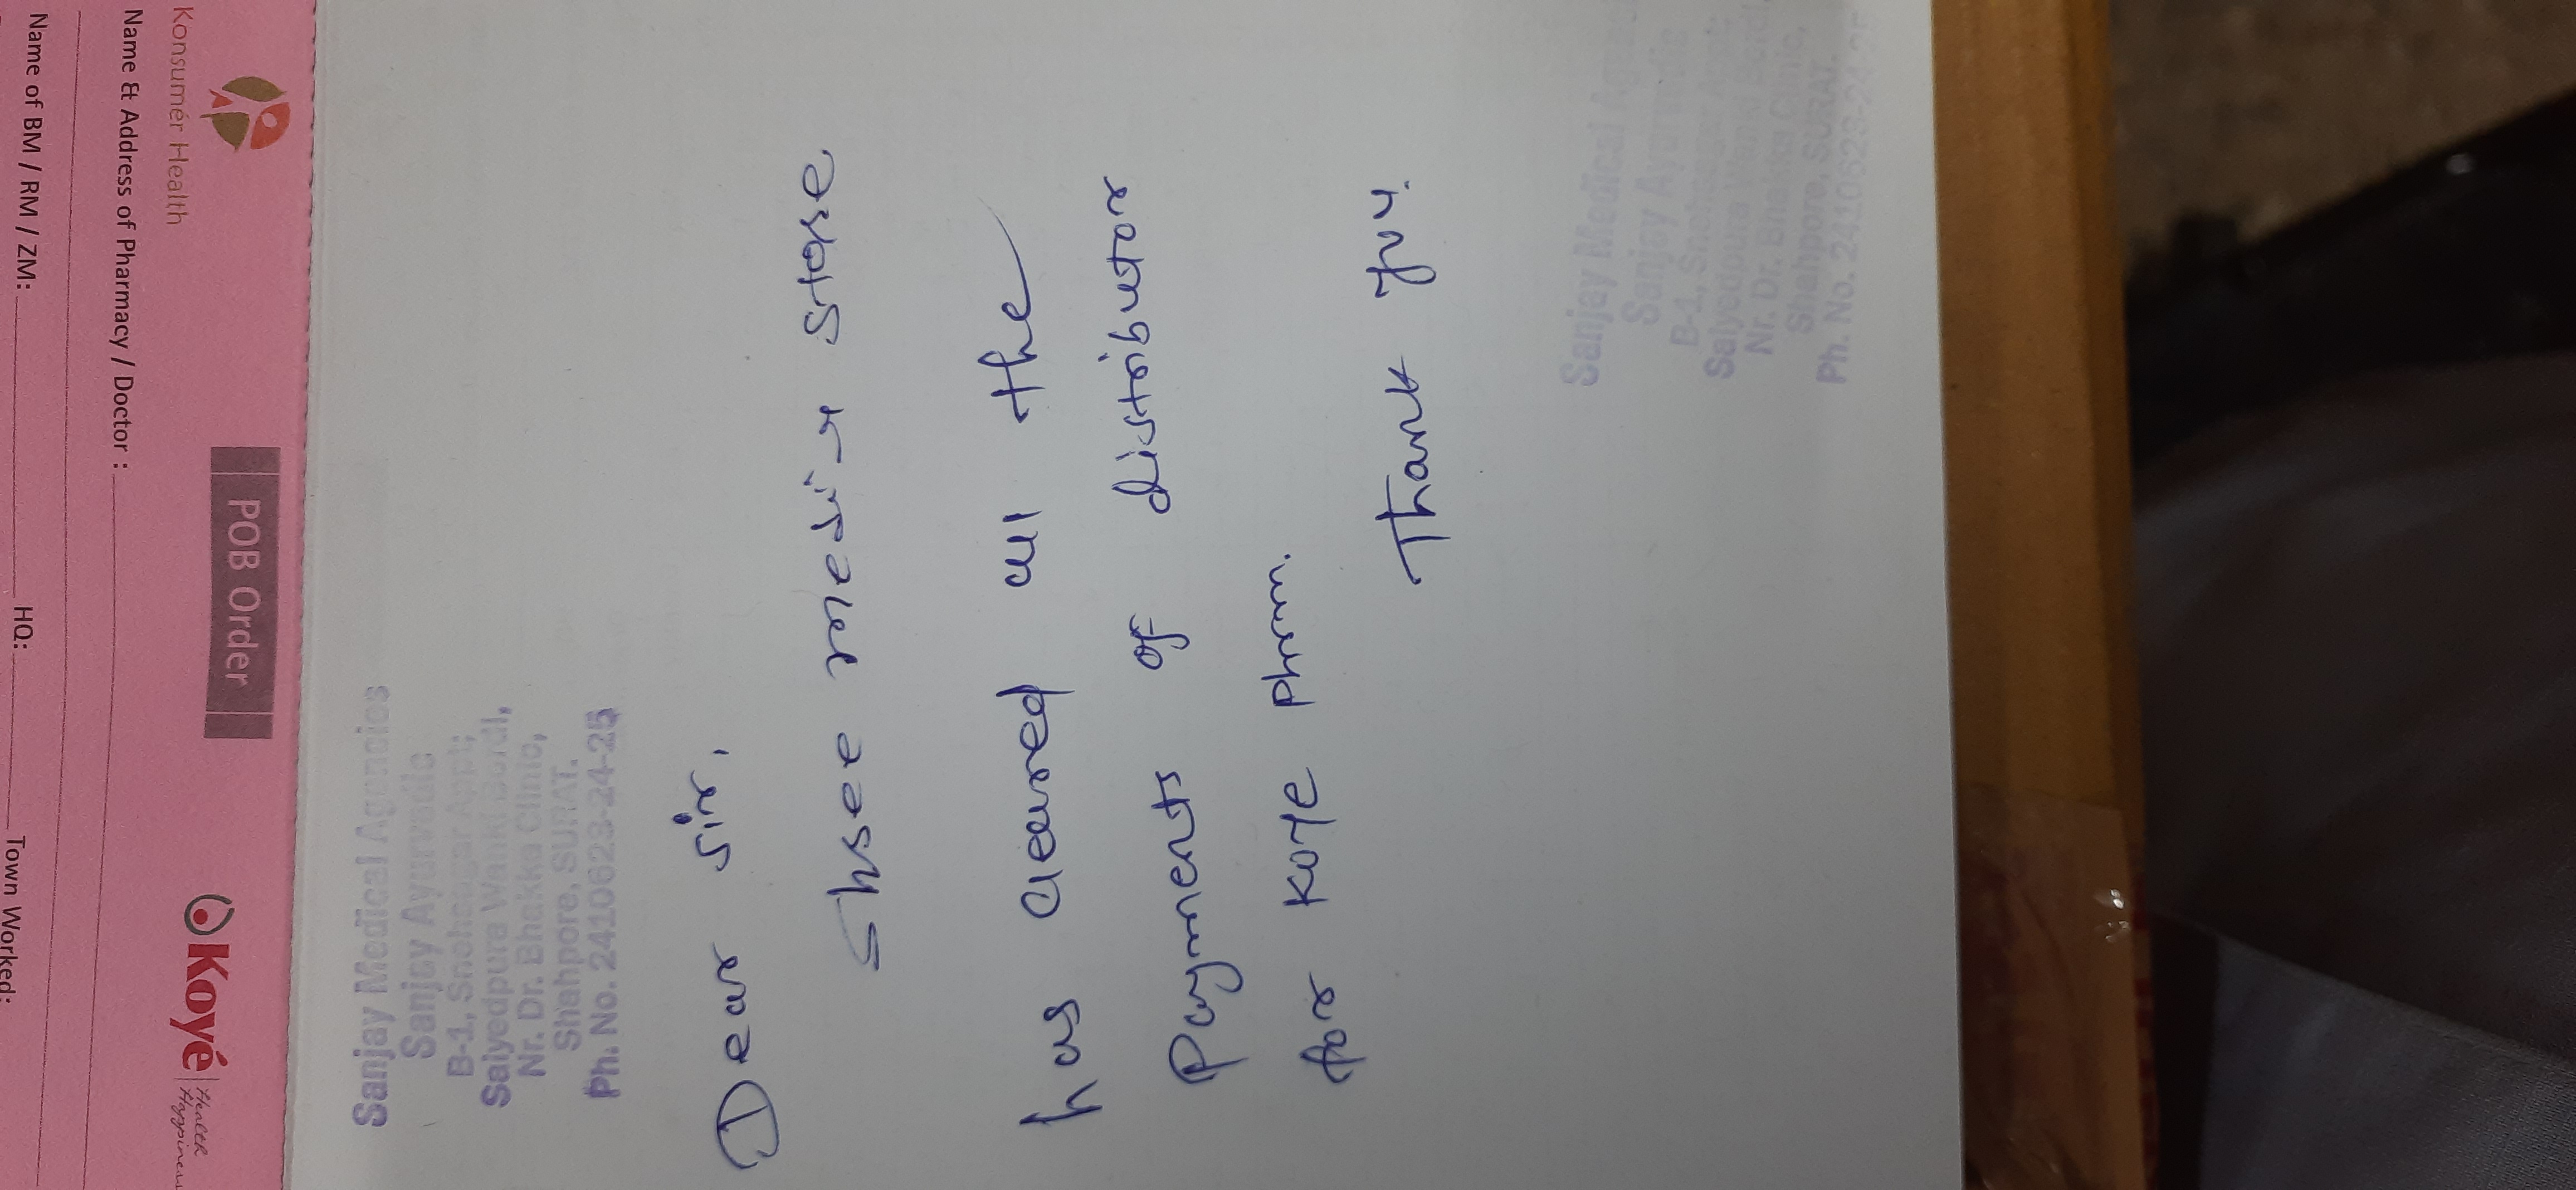 Konsumer Health
POB Order
Koyé
Health
Happiness
Name & Address of Pharmacy / Doctor :
Name of BM / RM / ZM:
HQ:
Town Worked:
Sanjay Medical Agencies
Sanjay Ayurvedic
B-1, Snehsagar Appt;
Saiyedpura Wanki Bordi,
Nr. Dr. Bhakka Clinic,
Shahpore, SURAT.
Ph. No. 2410623-24-25
Dear sir,
Store
has cleared all the
Payments of distributor
for Koye phrm.
Thank you.
Sanjay Medical
Sanjay Ayurvedic
B-1, Snehsagar Appt;
Saiyedpura Wanki Bordi,
Nr. Dr. Bhakka Clinic,
Shahpore, SURAT.
Ph. No. 2410623-24-25